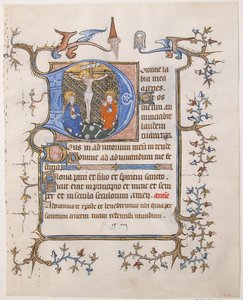 Domine la
bia mea a
peries.
Et os
meum an
nunciabit
laudem
tuam
Deus in adiutorium meum intende
Domine ad adiuvandum me fe
stina
Gloria patri et filio et spiritui sancto.
Sicut erat in principio et nunc et sem
per et in secula seculorum amen.
Adoramus te xpiste et benedicimus tibi quia per
sanctam crucem tuam redemisti mundum.